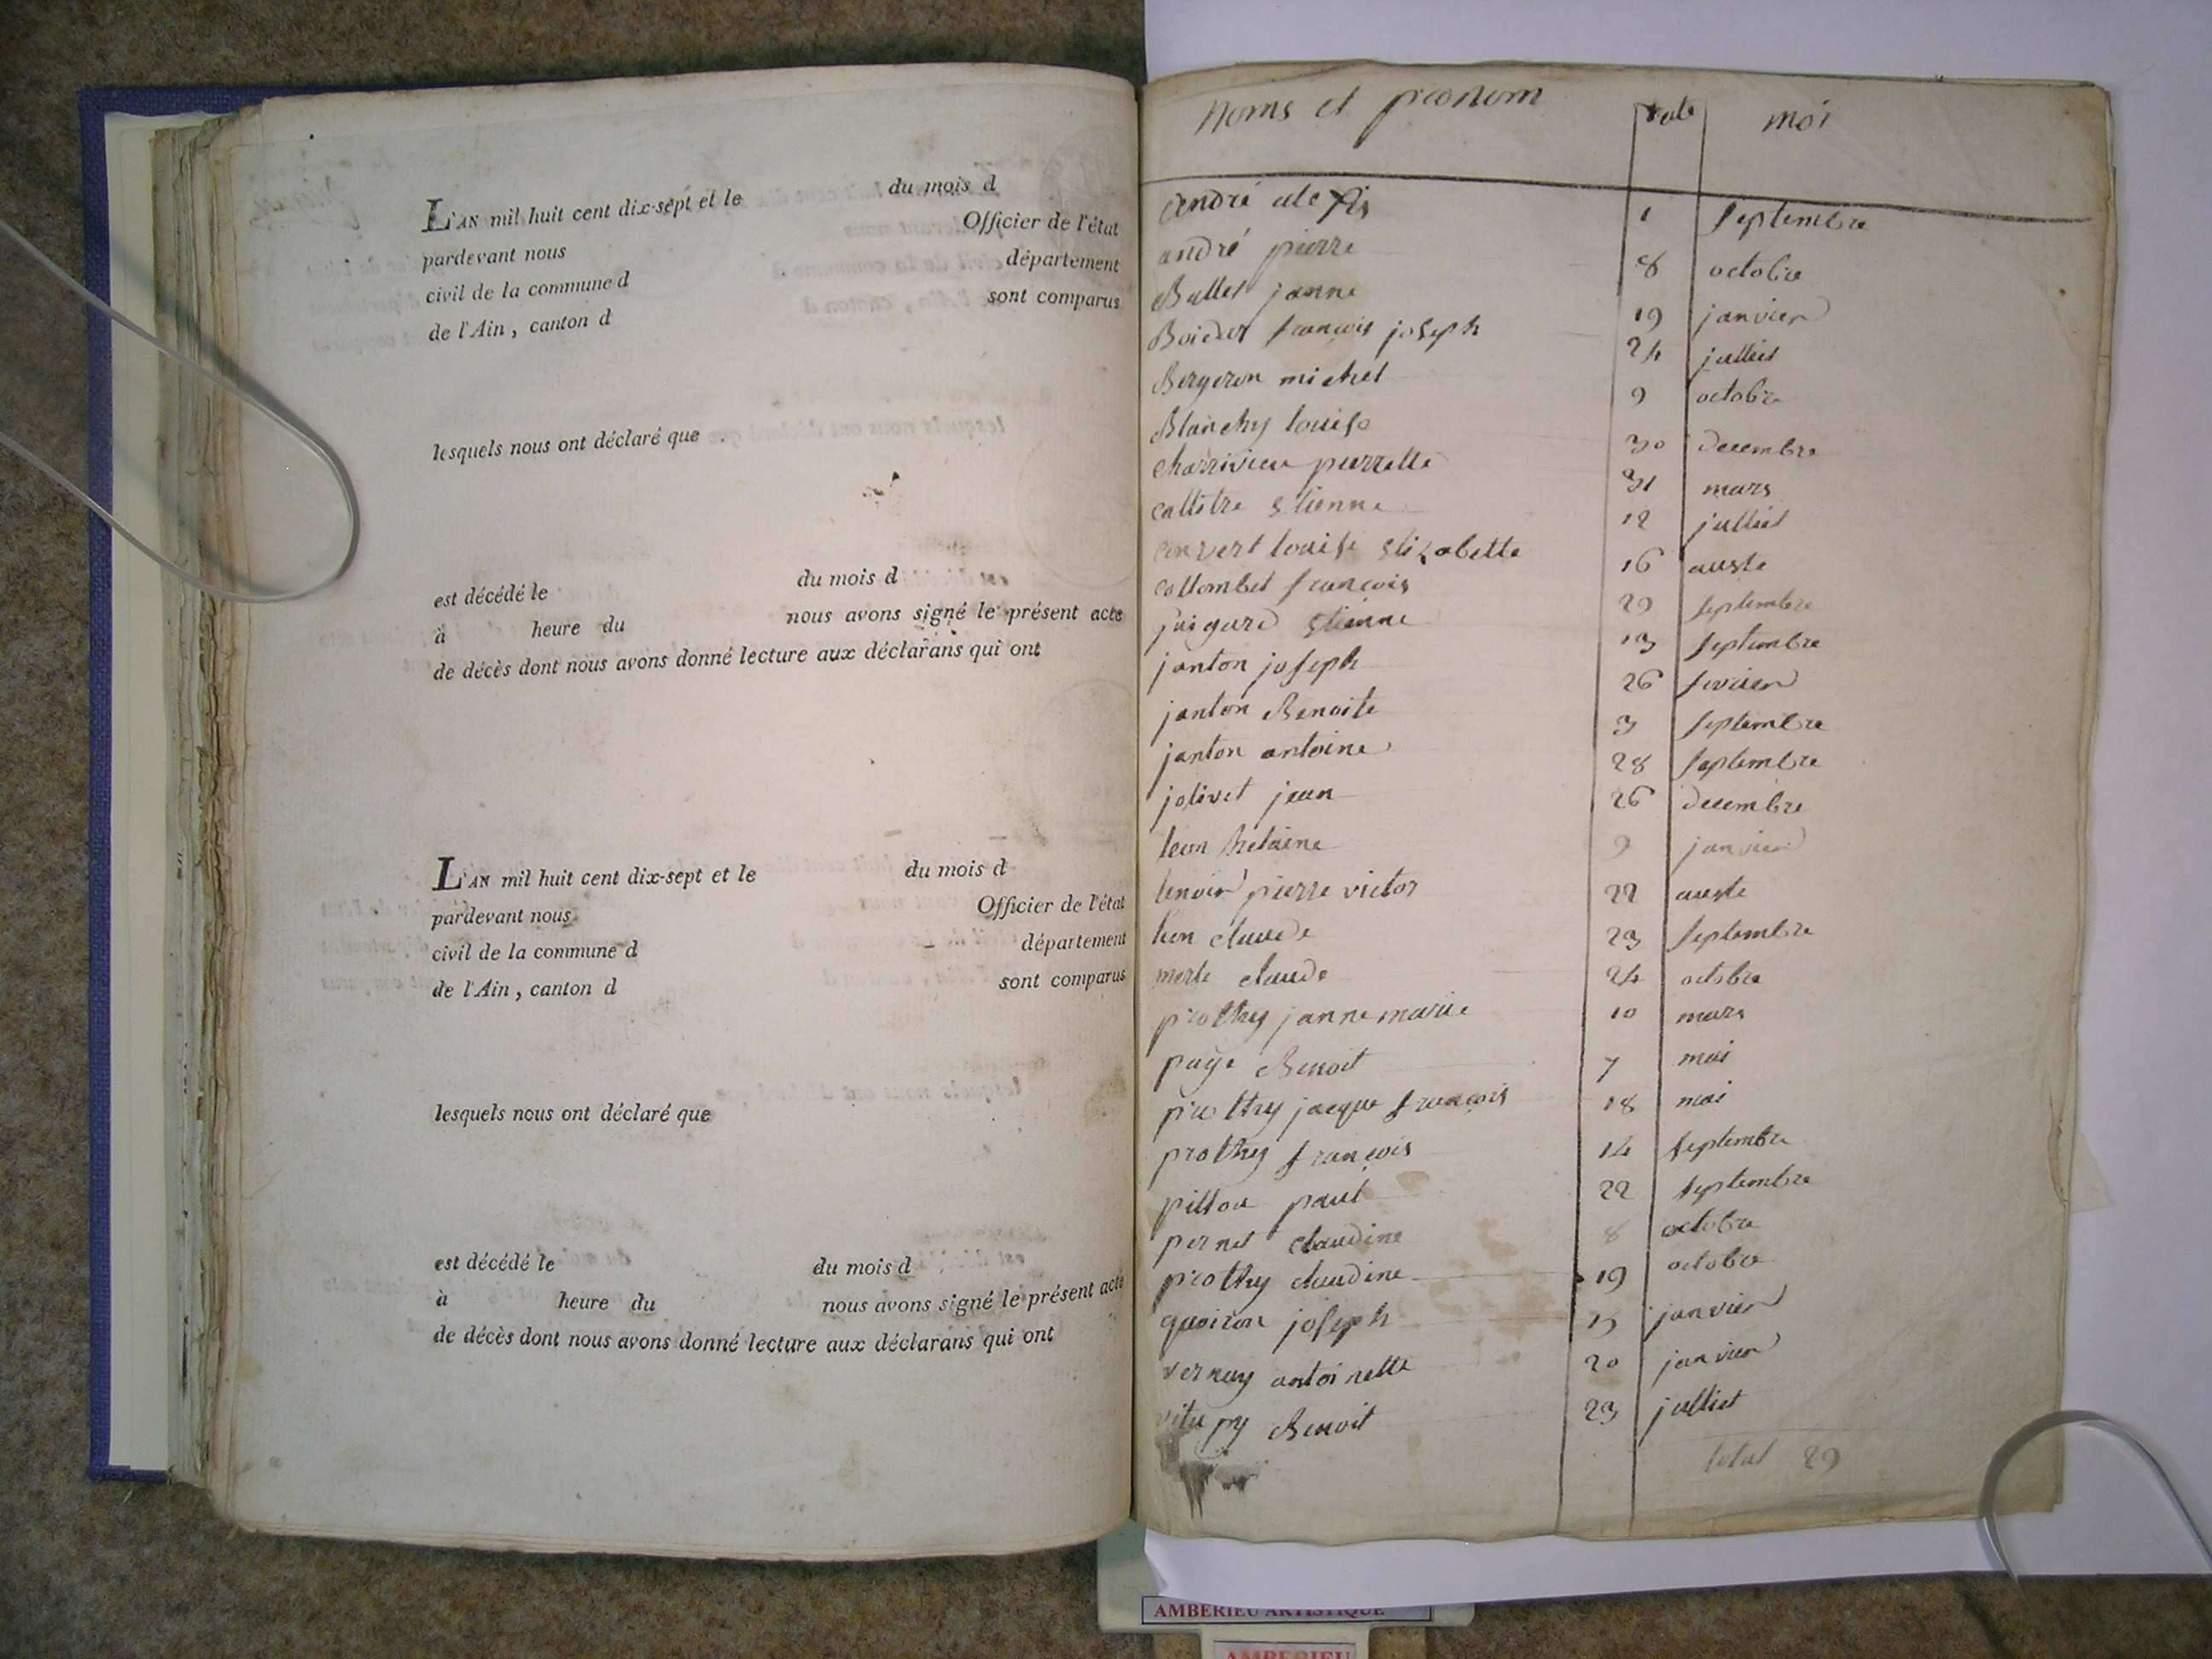 L'AN mil huit cent dix-sept et le du mois d
pardevant nous Officier de l'état
civil de la commune d département
de l'Ain, canton d sont comparus
lesquels nous ont déclaré que
est décédé le du mois d
à heure du nous avons signé le présent acte
de décès dont nous avons donné lecture aux déclarans qui ont
L'AN mil huit cent dix-sept et le du mois d
pardevant nous Officier de l'état
civil de la commune d département
de l'Ain, canton d sont comparus
lesquels nous ont déclaré que
est décédé le du mois d
à heure du nous avons signé le présent acte
de décès dont nous avons donné lecture aux déclarans qui ont
Noms et prenom date moi
andré alexis 1 septembre
andré pierre 8 octobre
Ballet janne 19 janvier
françois joseph 24 julliet
Bergeron michel 9 octobre
Blanchy louise 30 decembre
charrivieu pierrette 31 mars
etienne 12 julliet
convert louise elizabette 16 auste
collombet francois 29 septembre
juigard etienne 13 septembre
janton joseph 26 fevrier
janton Benoite 3 septembre
janton antoine 28 septembre
jolivet jean 26 decembre
leon helaine 9 janvier
lenoir pierre victor 22 auste
leon claude 23 septembre
merle claude 24 octobre
prothy janne marie 10 mars
page Benoit 7 mai
prothy jacque francois 18 mai
prothy francois 14 septembre
pillou paul 22 septembre
pernet claudine 8 octobre
prothy claudine 19 octobre
queiron joseph 15 janvier
vernay antoinette 20 janvier
Benoit 23 julliet
total 29
AMBERIEU ARTISTIQUE
AMBERIEU